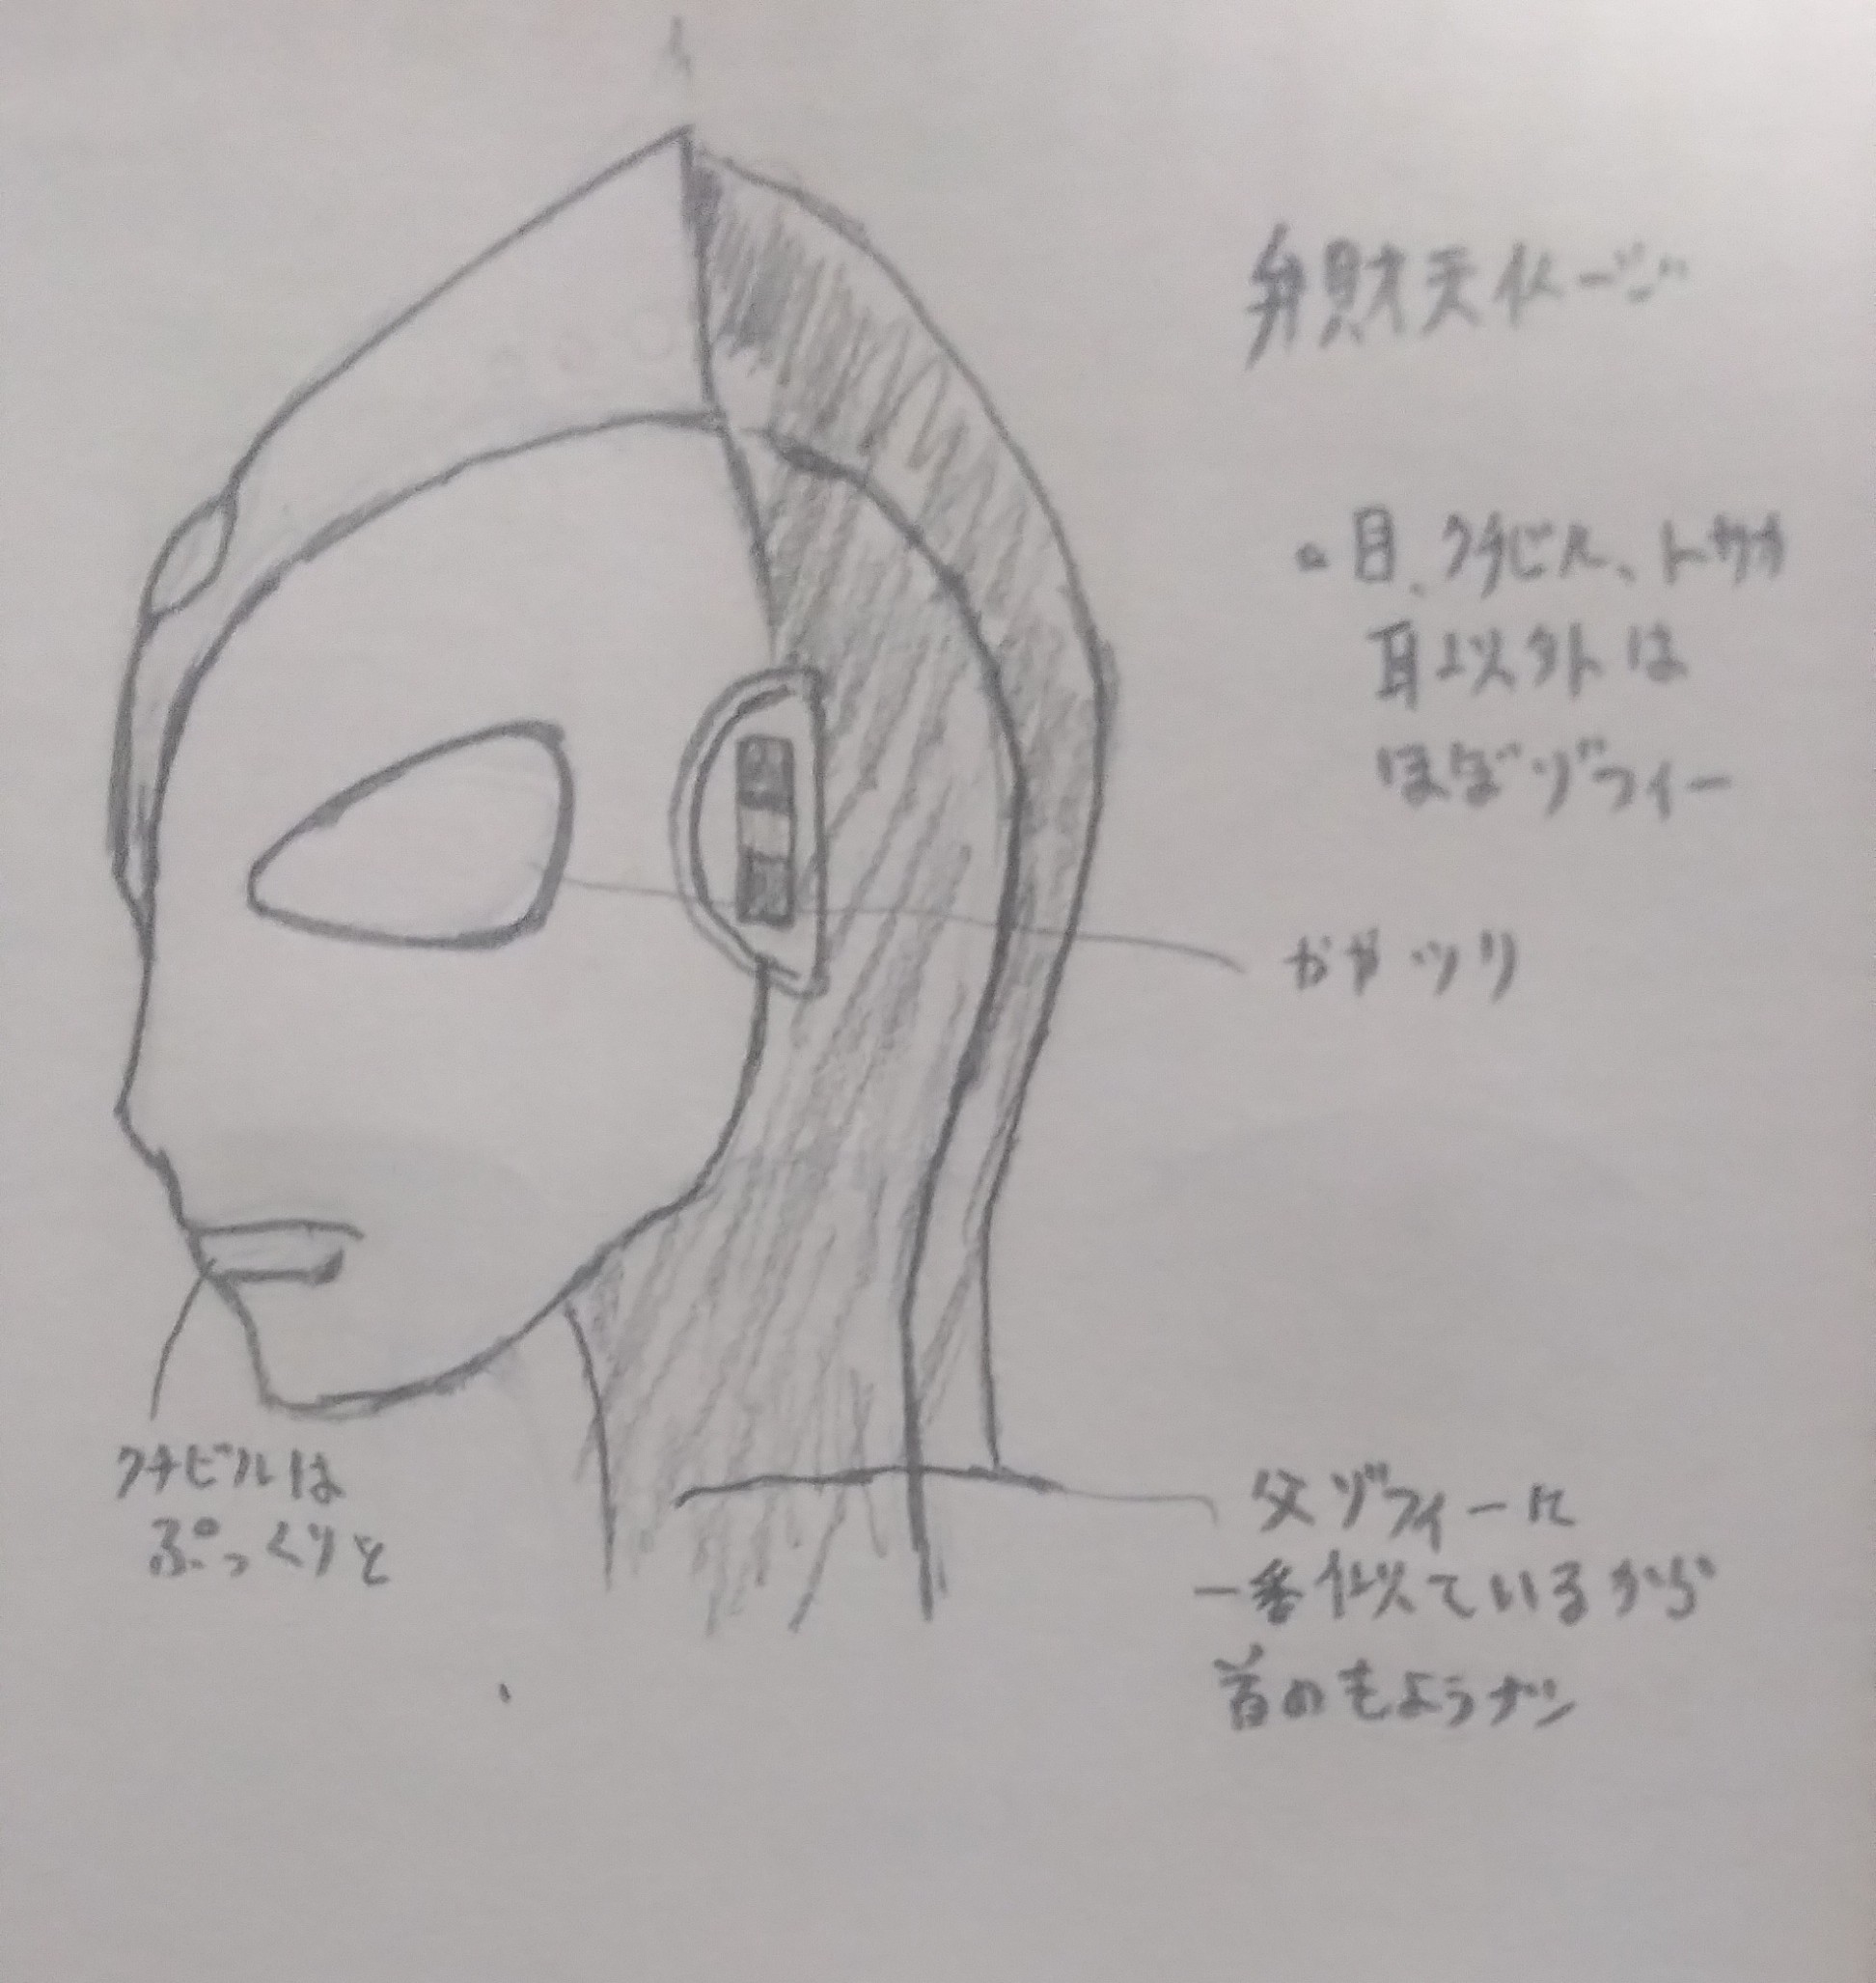 弁財天イメージ
。目、クチビル、トサカ
耳以外は
ほぼゾフィー
父ゾフィーに
一番似ているから
首のもようナシ
クチビルは
ぷっくりと